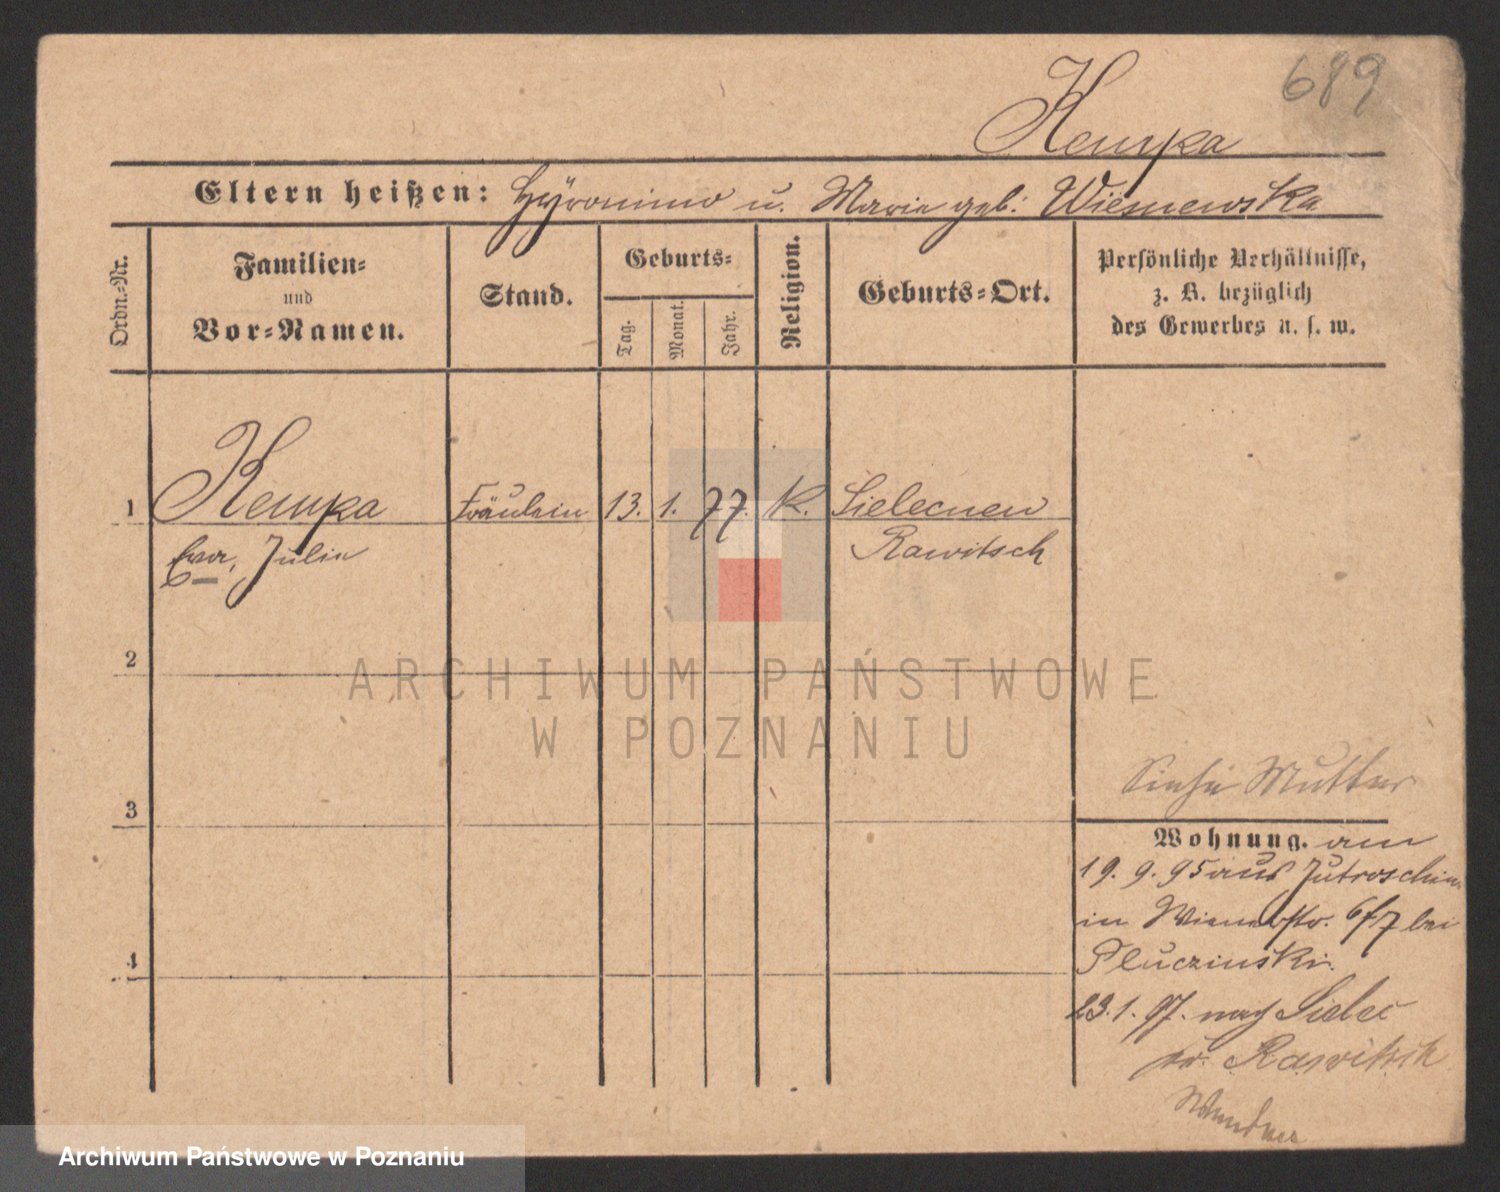 689
Kempka
Eltern heißen: Hyronimo u. Marie geb: Wiesnewska
Ordn.-Nr.
Familien-
und
Vor-Namen.
Stand.
Geburts-
Tag.
Monat.
Jahr.
Religion.
Geburts-Ort.
Persönliche Verhältnisse,
z. B. bezüglich
des Gewerbes u. s. w.
1 Kempka Fräulein 13. 1. 77. K. Sielecnen
Eva, Julie Rawitsch
2
3
4
Siehe Mutter
Wohnung. am
19. 9. 95 aus Jutroschin
in Wienerstr. 6/7 bei
Pluczinski.
23. 1. 97. nach Sielec
Kr. Rawitsch
ARCHIWUM PAŃSTWOWE
W POZNANIU
Archiwum Państwowe w Poznaniu